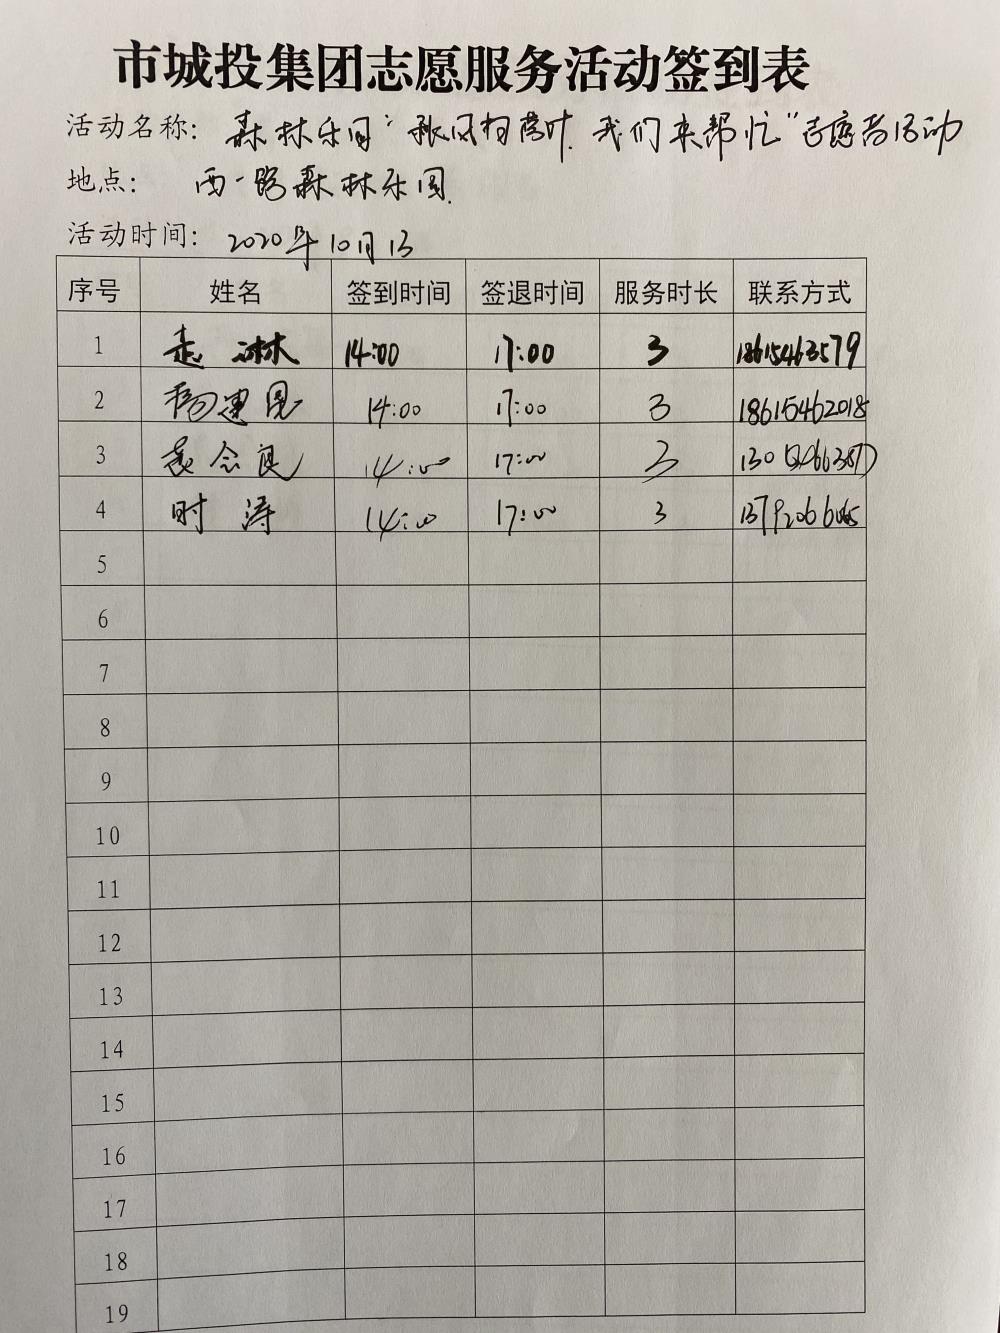 市城投集团志愿服务活动签到表
活动名称: 森林乐园“秋风扫落叶,我们来帮忙”志愿者活动
地点: 西一路森林乐园.
活动时间: 2020年10月13
序号 姓名 签到时间 签退时间 服务时长 联系方式
1 14:00 17:00 3 18615463579
2 杨建国 14:00 17:00 3 18615462018
3 袁念良 14:00 17:00 3
4 时涛 14:00 17:00 3
5
6
7
8
9
10
11
12
13
14
15
16
17
18
19